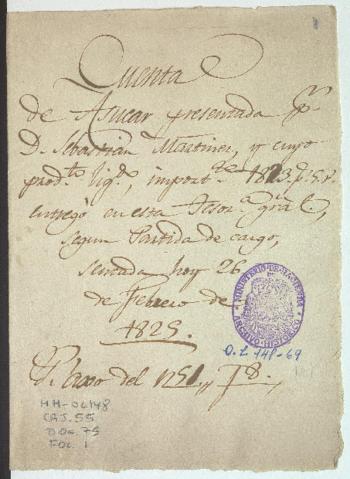 Quenta
de Asucar presentada pr.
D. Sebastian Martinez, y cuyo
prodto. liqo., importte. 1823 ps.
entregó en esta Tesora. gral.,
segun Partida de cargo,
sentada hoy 26
de Febrero de
1825.
MINISTERIO DE HACIENDA
ARCHIVO HISTORICO
O.L. 148-69
del
HH-OL148
CAJ. 55
DOC. 75
FOL. 1